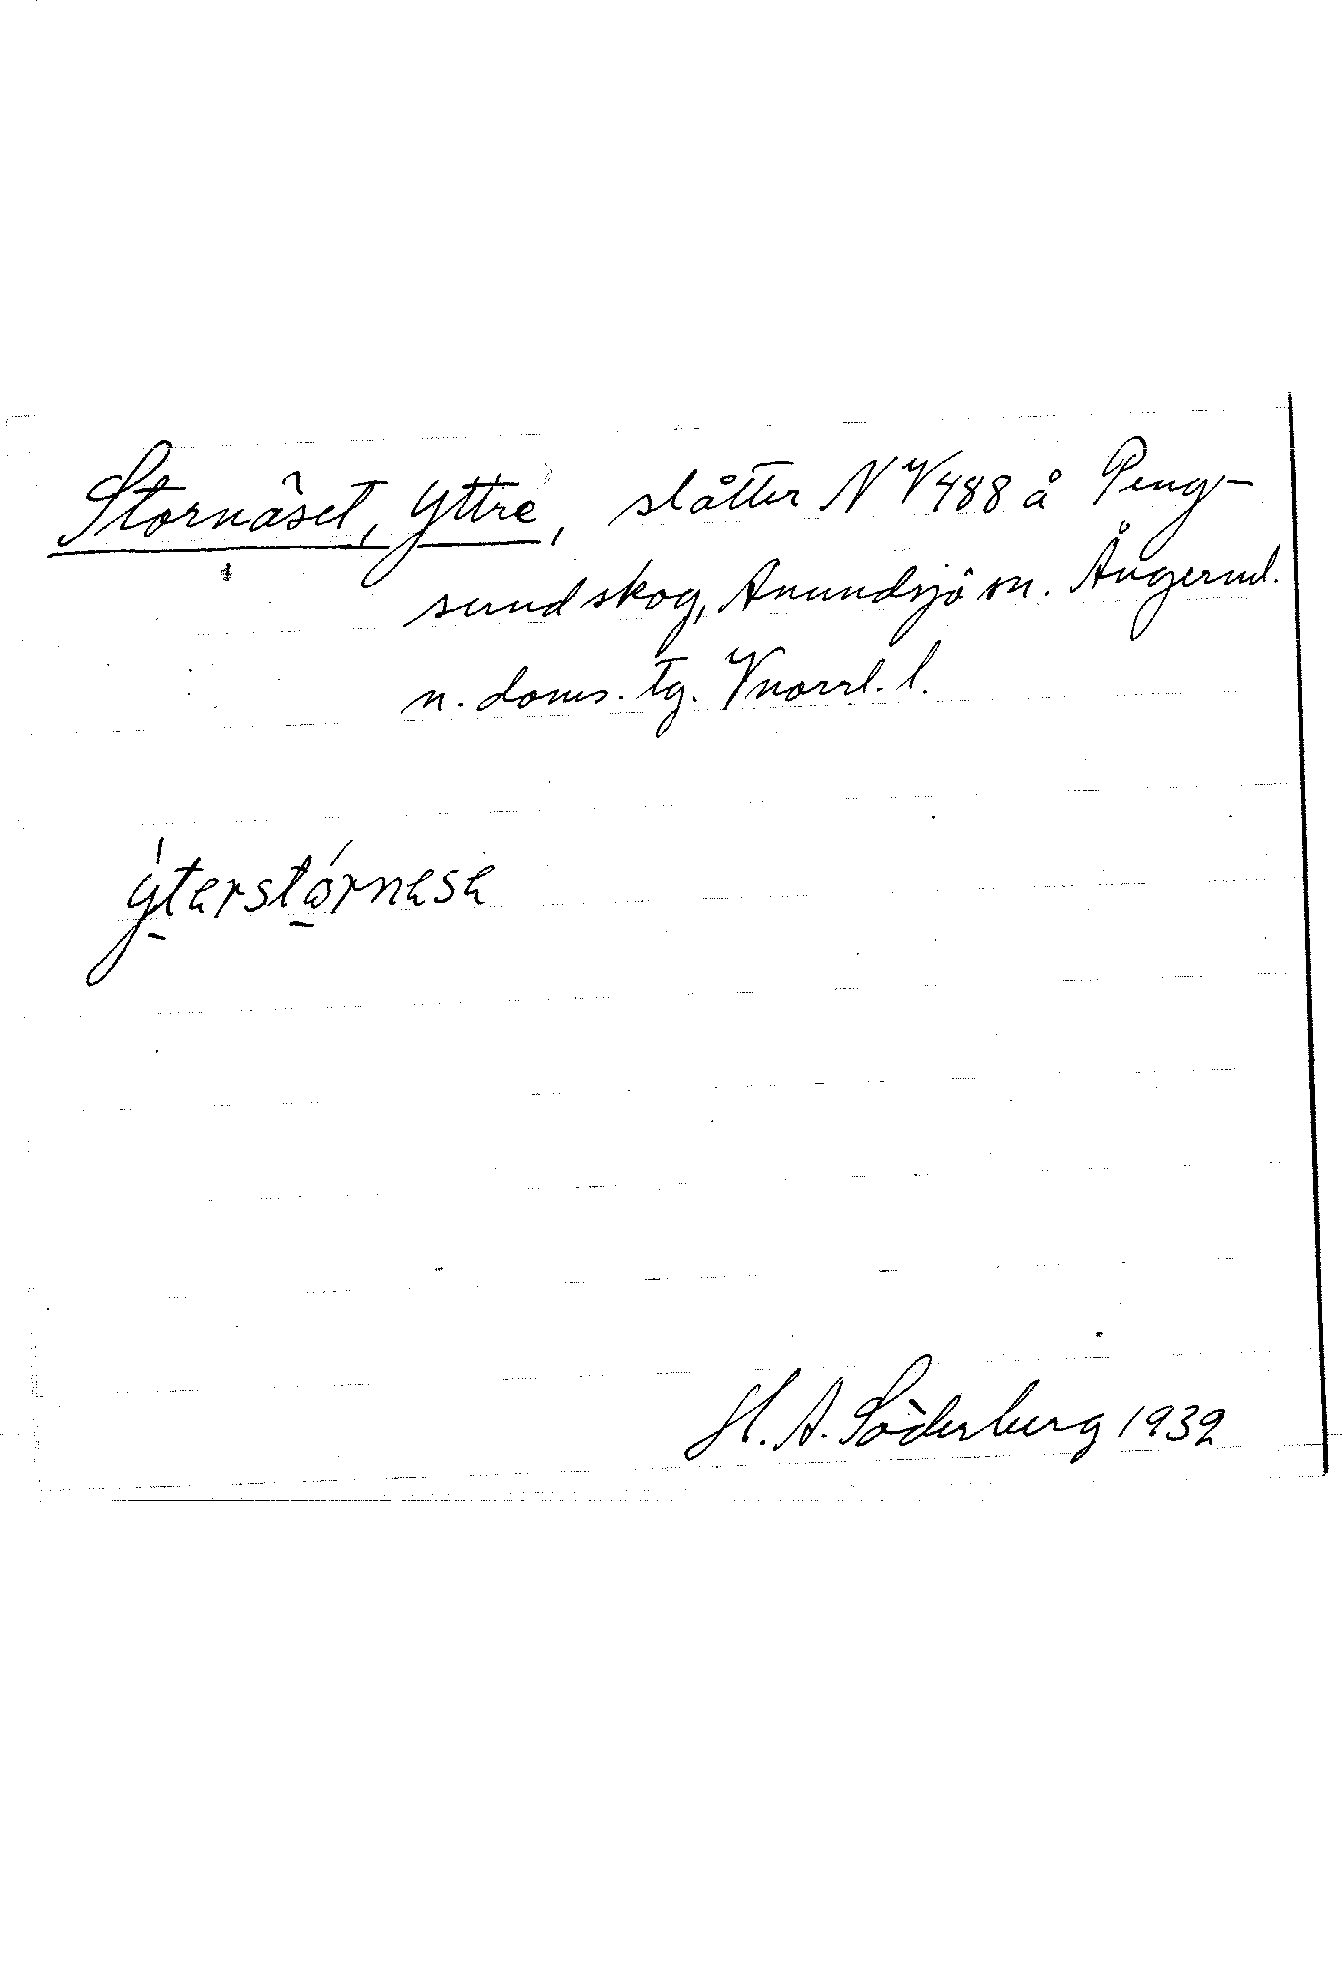 Stornäset, Yttre, slåtter NV 488 å Peng-
sund skog, Anundsjö sn. Ångerml.
n. doms. tg. Vnorrl. l.
ýterstórnese
H. A. Söderberg 1932